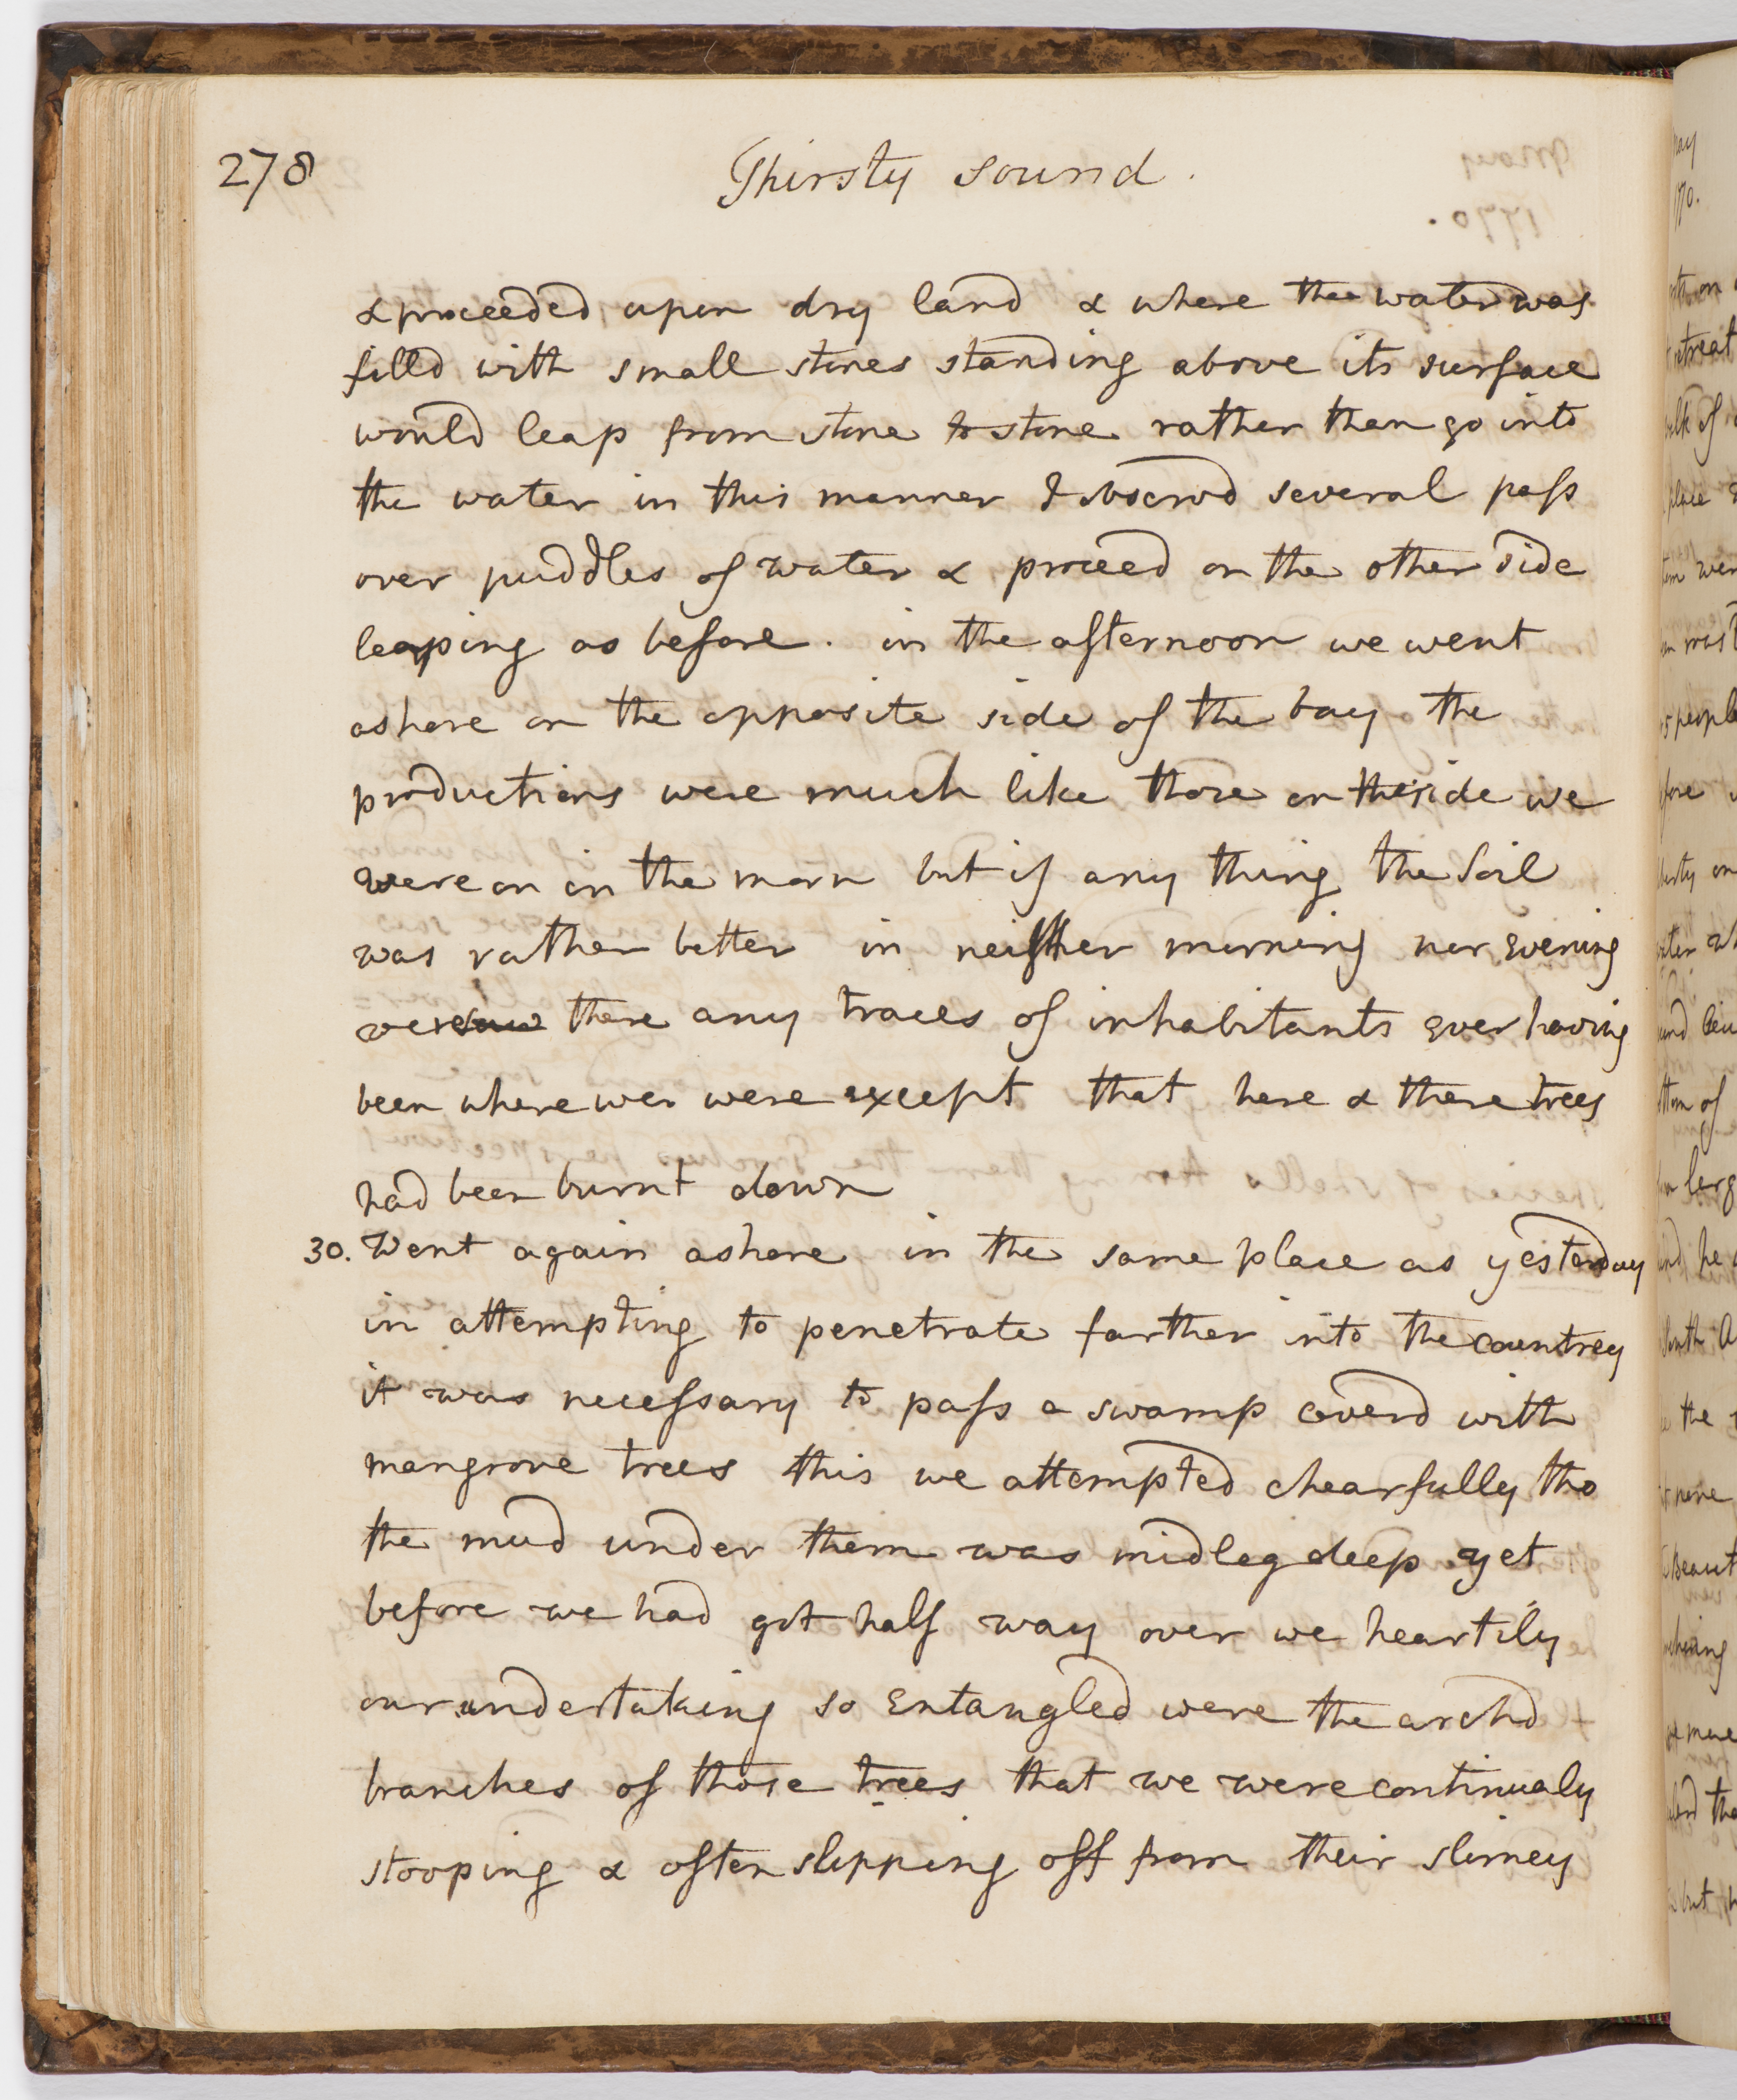 278
Thirsty sound.
& proceeded upon dry land & where the water was
filld with small stones standing above its surface
would leap from stone to stone rather than go into
the water in this manner I observd several pass
over puddles of water & proceed on the other side
leaping as before. in the afternoon we went
ashore on the opposite side of the bay the
productions were much like those on the side we
were on in the morn but if any thing the Soil
was rather better in neither morning nor Evening
were there any traces of inhabitants Ever having
been where we were except that here & there trees
had been burnt down
30. Went again ashore in the same place as yesterday
in attempting to penetrate farther into the countrey
it was necessary to pass a swamp coverd with
mangrove trees this we attempted chearfully tho
the mud under them was midleg deep yet
before we had got half way over we heartily
our undertaking so Entangled were the archd
branches of those trees that we were continualy
stooping & often slipping off from their slimey
May
1770.